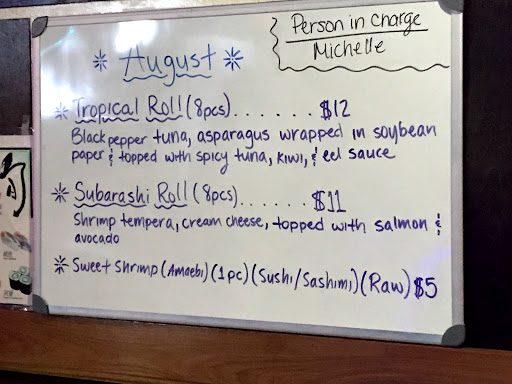 Person in Charge
Michelle
* August *
* Tropical Roll (8pcs). . . . . . . $12
Black pepper tuna, asparagus wrapped in soybean
paper & topped with spicy tuna, kiwi, & eel sauce
* Subarashi Roll (8pcs). . . . . . $11
Shrimp tempera, cream cheese, topped with salmon &
avocado
* Sweet Shrimp (Amaebi) (1pc) (Sushi/Sashimi) (Raw) $5
旬